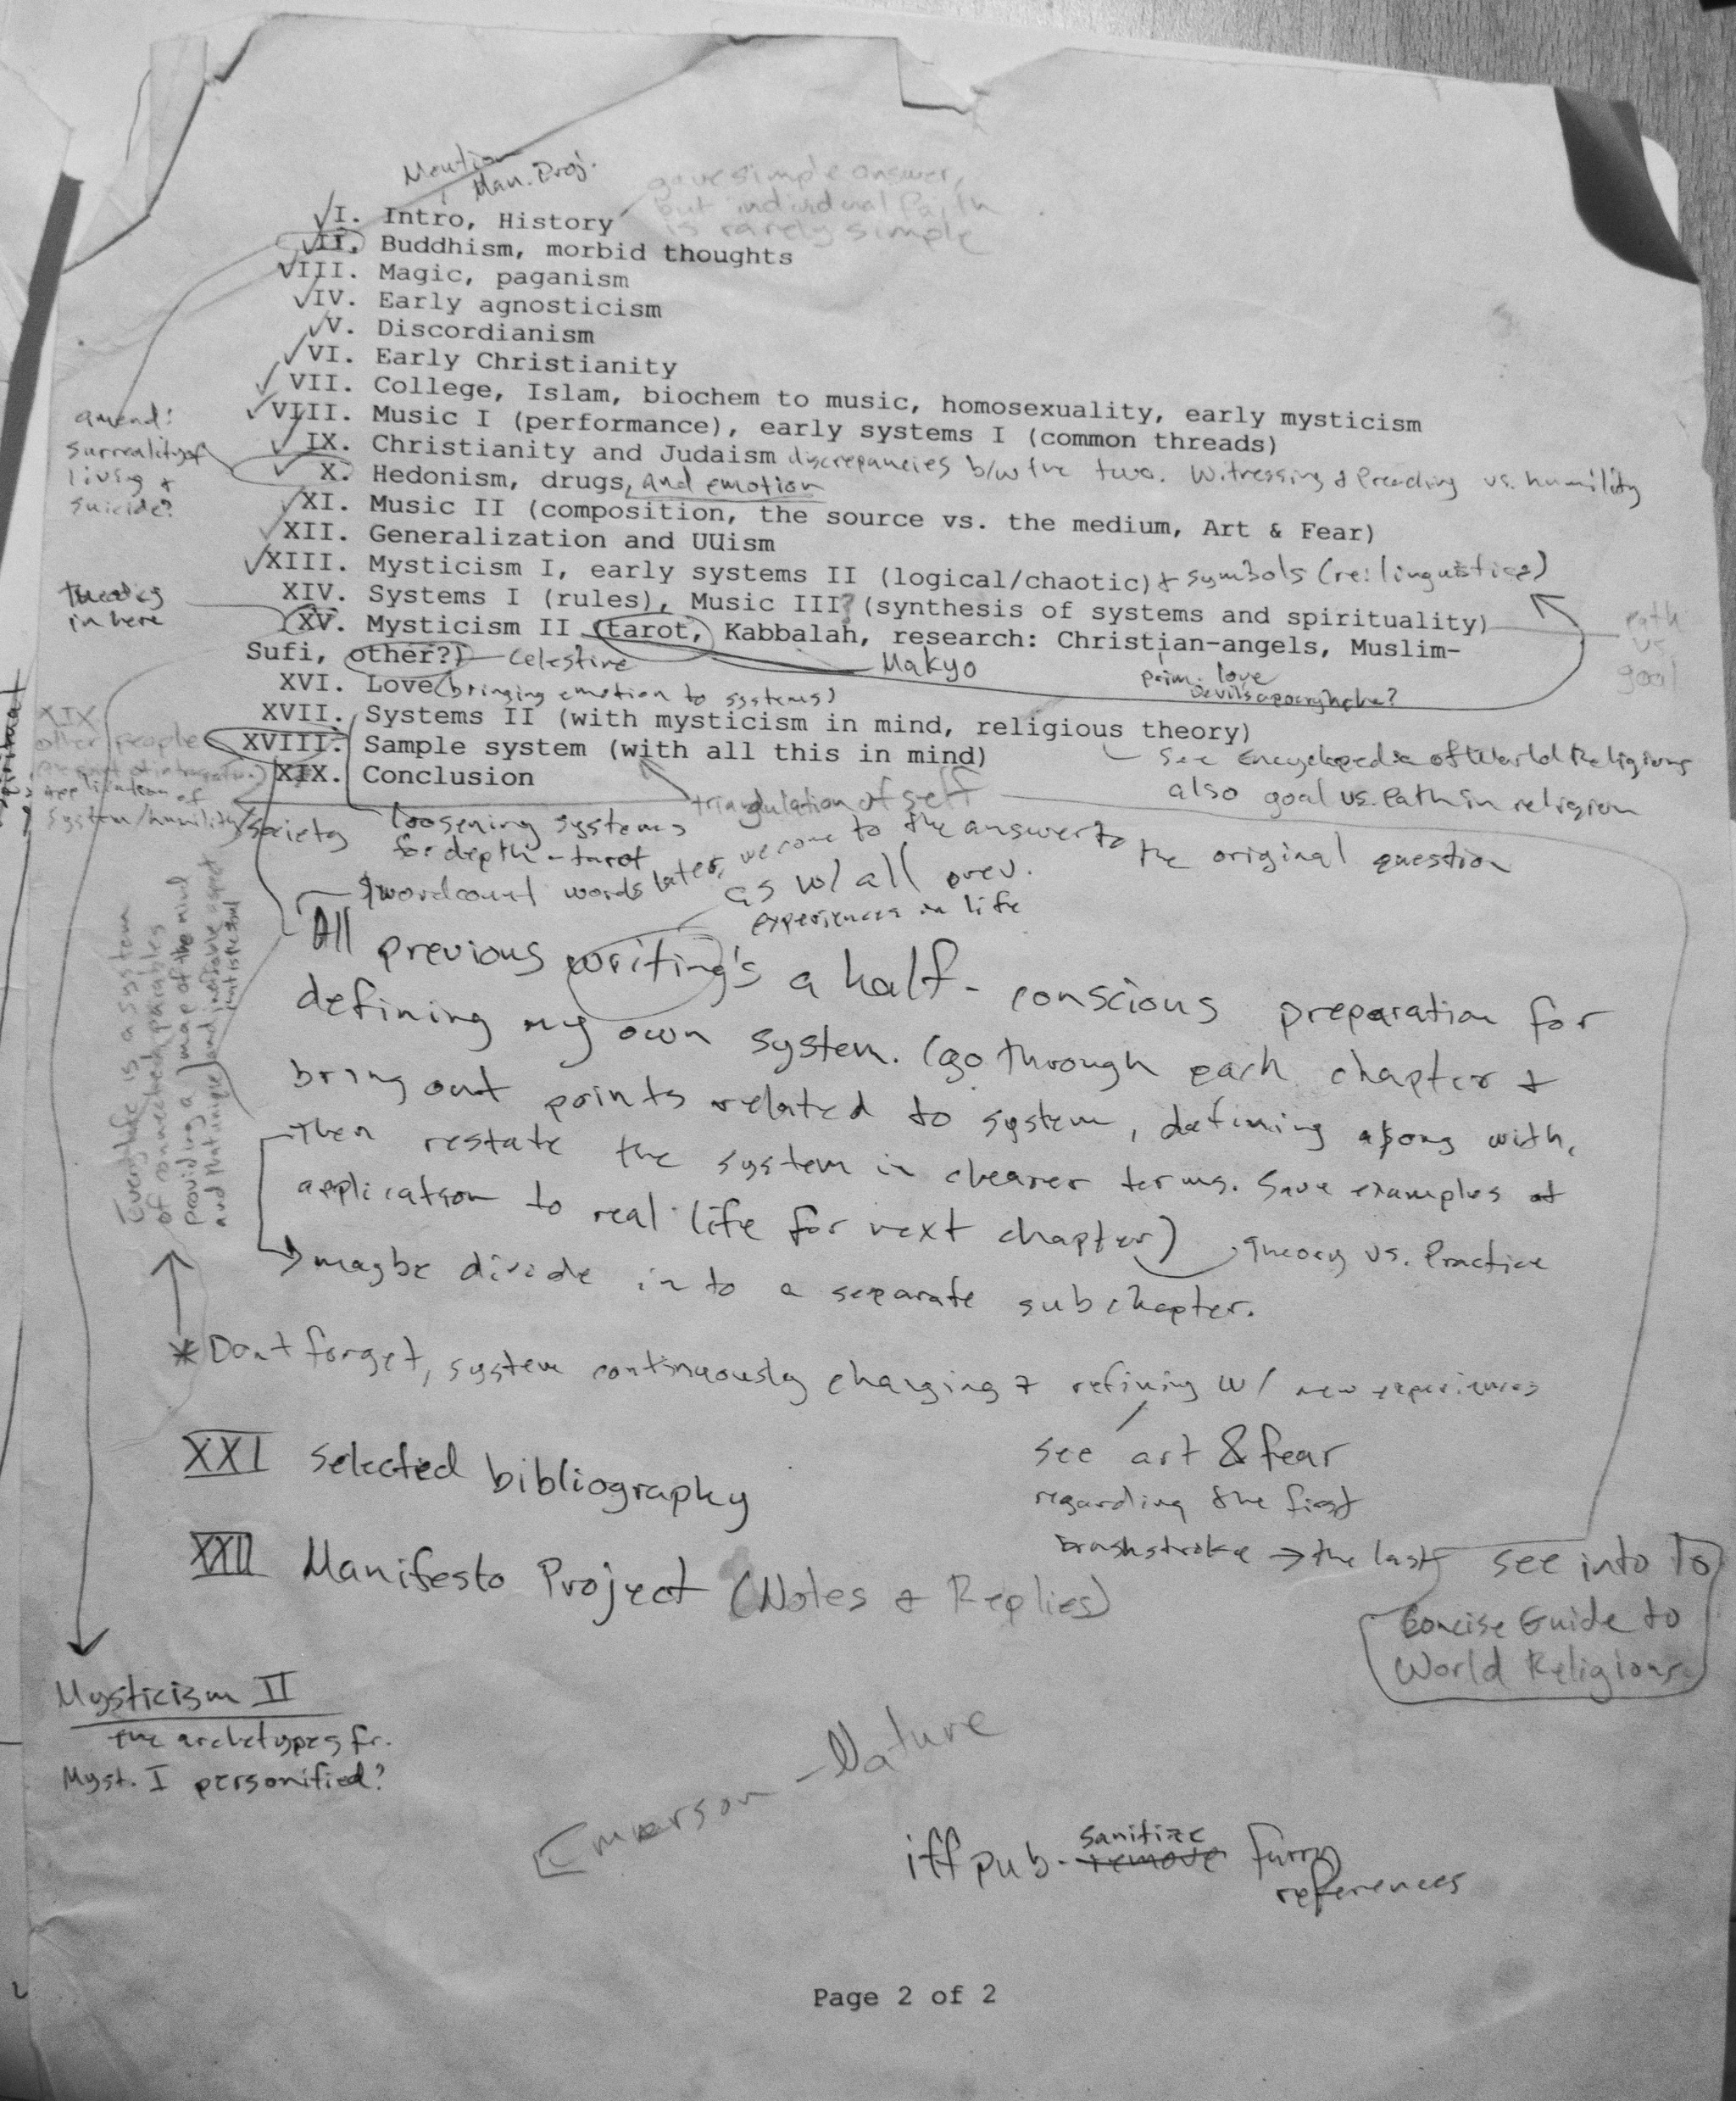 Mention
Man. Proj.
gave simple answer,
but individual faith
is rarely simple
I. Intro, History
II. Buddhism, morbid thoughts
VIII. Magic, paganism
IV. Early agnosticism
V. Discordianism
VI. Early Christianity
VII. College, Islam, biochem to music, homosexuality, early mysticism
VIII. Music I (performance), early systems I (common threads)
IX. Christianity and Judaism discrepancies b/w the two. Witnessing & Preaching vs. humility
X. Hedonism, drugs, and emotion
XI. Music II (composition, the source vs. the medium, Art & Fear)
XII. Generalization and UUism
XIII. Mysticism I, early systems II (logical/chaotic) & symbols (re: linguistics)
XIV. Systems I (rules), Music III? (synthesis of systems and spirituality)
XV. Mysticism II (tarot, Kabbalah, research: Christian-angels, Muslim-
Sufi, other?) Celestine
Makyo
prim. love
devils apocrypha?
XVI. Love (bringing emotion to systems)
XVII. Systems II (with mysticism in mind, religious theory)
XVIII. Sample system (with all this in mind)
XIX. Conclusion
amend:
surreality of
living &
suicide?
in here
path
vs
goal
See Encyclopedia of World Religions
also goal vs. Path in religion
triangulation of self
XIX
other people
application of
system/humility/society
loosening systems
for depth - tarot
wordcount words later, we come to the answer to the original question
as w/ all prev.
experiences in life
All previous writing's a half-conscious preparation for
defining my own system. (go through each chapter &
bring out points related to system, defining along with,
Then restate the system in clearer terms. Save examples of
application to real life for next chapter) theory vs. Practice
maybe divide in to a separate subchapter.
Everything life is a system
of connected parables
providing a map of the mind
and that
* Dont forget, system continuously changing & refining w/ new experiences
see art & fear
regarding the first
brushstroke → the last
XXI Selected bibliography
XXII Manifesto Project (Notes & Replies)
see into To
Concise Guide to
World Religions
Mysticism II
the archetypes fr.
Myst. I personified?
Emerson - Nature
iff pub. remove sanitize furry
references
Page 2 of 2